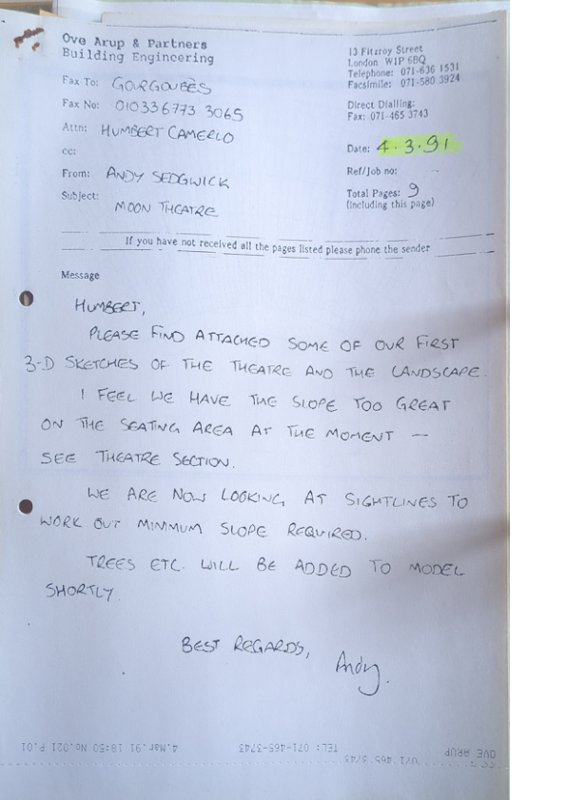 Ove Arup & Partners
Building Engineering
13 Fitzroy Street
London W1P 6BQ
Telephone: 071-636 1531
Facsimile: 071-580 3924
Direct Dialling:
Fax: 071-465 3743
Fax To: GOURGOUBÈS
Fax No: 010336773 3065
Attn: HUMBERT CAMERLO
cc:
Date: 4.3.91
From: ANDY SEDGWICK
Ref/Job no: -
Subject: MOON THEATRE
Total Pages: 9
(including this page)
If you have not received all the pages listed please phone the sender
Message
HUMBERT,
PLEASE FIND ATTACHED SOME OF OUR FIRST
3-D SKETCHES OF THE THEATRE AND THE LANDSCAPE.
I FEEL WE HAVE THE SLOPE TOO GREAT
ON THE SEATING AREA AT THE MOMENT —
SEE THEATRE SECTION.
WE ARE NOW LOOKING AT SIGHTLINES TO
WORK OUT MINIMUM SLOPE REQUIRED.
TREES ETC. WILL BE ADDED TO MODEL
SHORTLY.
BEST REGARDS,
Andy.
OVE ARUP TEL: 071-465-3743 4.Mar.91 18:50 No.021 P.01
071 465 3743